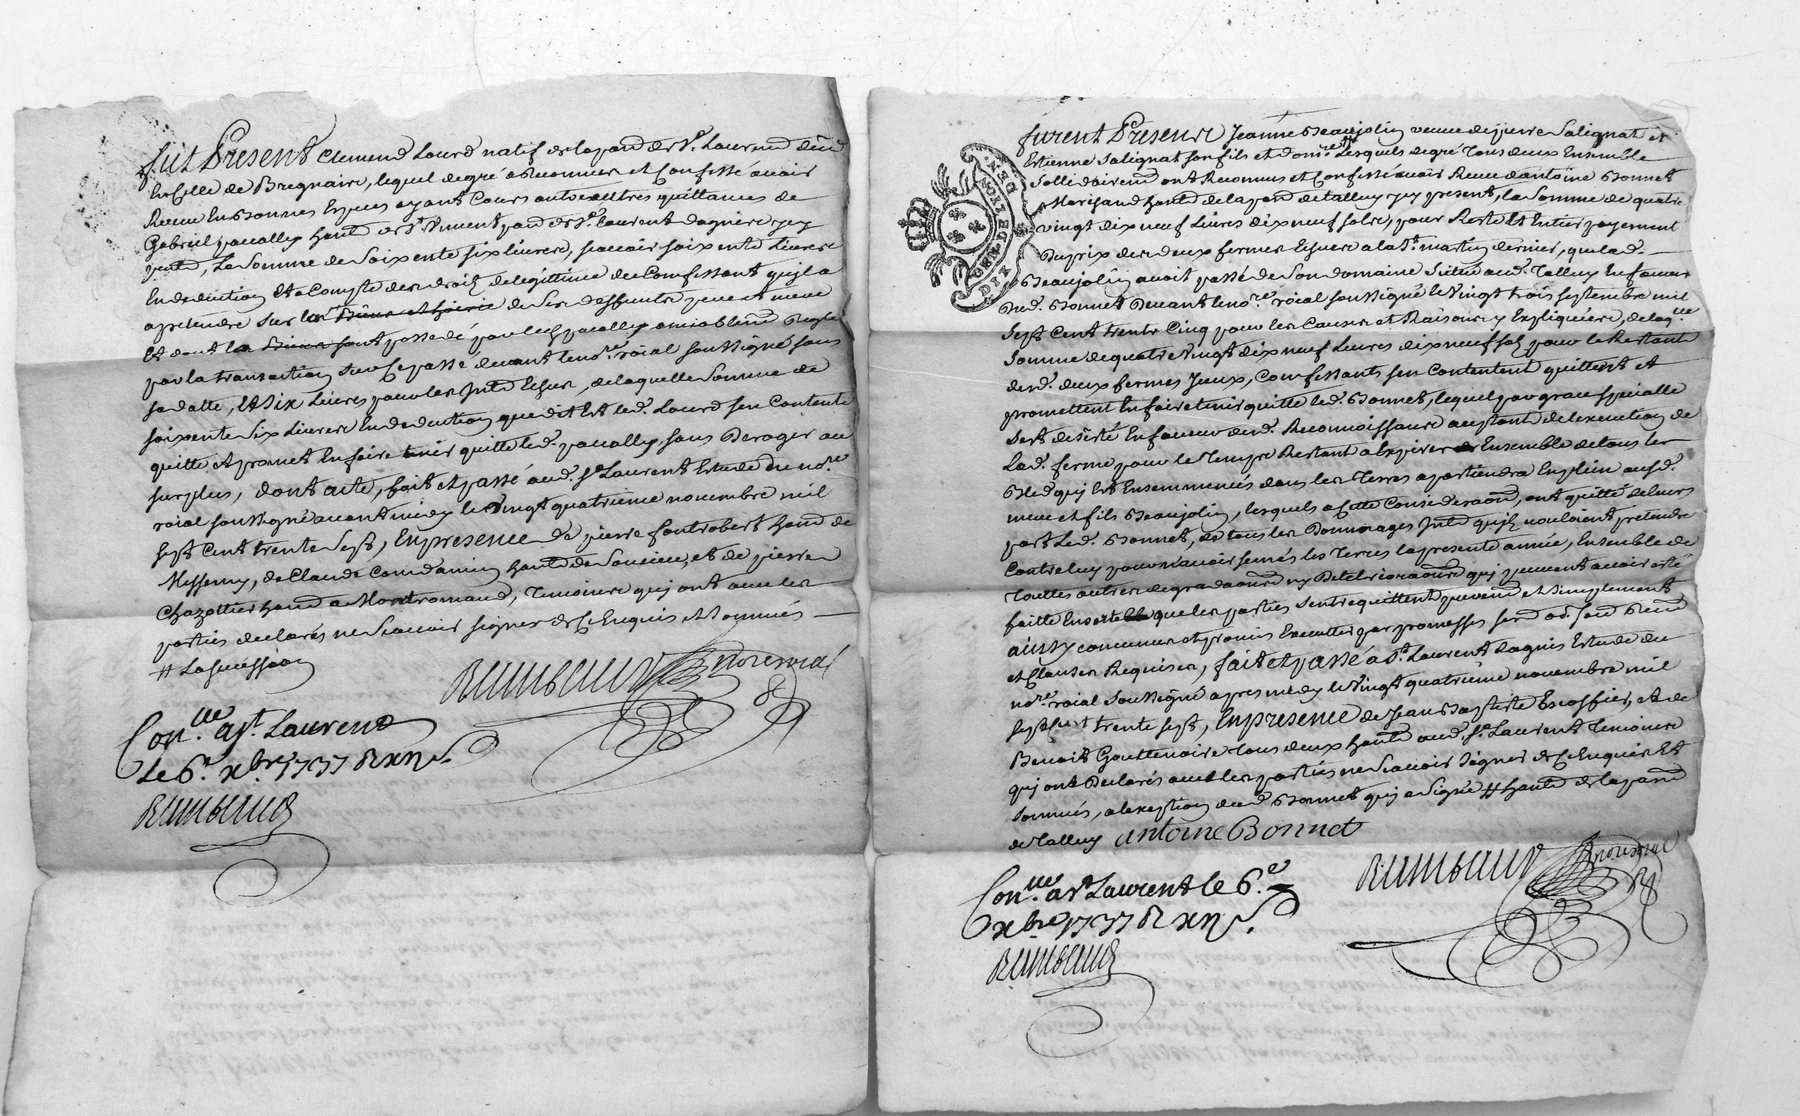 fut Present Clement Lourd natif de la par. de St. Laurend
en Celle de Bregnaire, lequel de gré a Reconnu et Confessé avoir
Receu En Bonnes Especes ayant Cours autres quittances de
Gabriel pacally hant. de St Vincent, par. de St. Laurent dagniere icy
present, La Somme de Soixente six livres, scavoir soixente livres
En deduction Et a Compte des droits de legittime du Confessant quil a
a pretendre sur de Ses deffuntz pere et mere
Et dont possedé par led. pacally amiablement Reglé
par la transaction sur Ce passé devant le nore. roial soussigné sous
sa datte, Et Six livres pour les Intd. Echus, de laquelle Somme de
soixente Six livres En deduction que dit Est led. Lourd sen Contente
quitte et promet En faire tenir quitte led. pacallly, sans Deroger au
surplus, dont acte, fait et passé aud. St Laurent Etude du nore.
roial soussigné avant midy le Vingt quatrieme novembre mil
Sept Cent trente Sept, En presence de pierre fontrobert hant. de
Messemy, de Claude Condamin hant. de Soucieu, et de pierre
Chazottier hant. a Montromand, Temoins qui ont avec les
parties declarés ne Scavoir signer de Ce Enquis et Sommés
# La succession
Rimbaud nore roial
Con.lle a St. Laurend
Le 6e. xbre 1737 R xii s.
Rimbaud
furent Present Jeanne Beaujolin veuve de pierre Salignat et
Estienne Salignat son fils et Lesquels de gré Tous deux Ensemble
Sollidairement ont Reconnus et Confessé avoir Receu dantoine Bonnet
Marchand hant. de la par. de talluy icy present, la Somme de quatre
vingt dix neuf Livres dix neuf sols, pour Reste Et Entier payement
Du prix des deux fermes Echues a la St. martin dernier, que lad.
Beaujolin avoit passé de Son domaine Situé aud. Talluy En faveur
Dud. Bonnet Devant le nore. roial soussigné le Vingt trois septembre mil
Sept Cent trente Cinq pour les Causes et Raisons y Expliquées, de laqlle
Somme de quatre Vingt dix neuf Livres dix neuf sols pour le Restant
desd. deux fermes Iceux, Confessants sen Contentent quittent et
promettent En faire tenir quitte led. Bonnet, lequel par grace specialle
En faveur desd. Reconnoissants au restant de lexecution de
Lad. ferme pour le Temps Restant a Expirer Ensemble de tous les
Bled qui Est Ensemmencés dans les Terres apartiendra En plein ausd.
mere et fils Beaujolin, lesquels a Cette Consideraon. ont quitté de leurs
part Led. Bonnet, de tous les Dommages Intd. quils vouloient pretendre
Contre luy pour navoir semés les Terres la presente année, Ensemble de
Touttes autres degradaons. ny Deterioraons. qui peuvent avoir eté
faitte que les parties sentrequittent purement et Simplement
ainsy convenu et promis Executter par promesses serm.
et Clauses Requises, fait et passé a St. Laurent dagnis Etude du
nore. roial Soussigné apres midy le Vingt quatrieme novembre mil
sept cent trente sept, En presence de Jean Baptiste Escoffier, et de
Benoit Gouttenoire tous deux hants. aud. St. Laurent Temoins
qui ont Declarés avec les parties ne Scavoir Signer de Ce Enquis Et
Sommés, a lexeption dud. Bonnet qui a Signé # hant. de la par.
de Talluy antoine Bonnet
Rimbaud nore roial
Con.lle a St Laurent le 6e.
xbre 1737 R xii s.
Rimbaud
GEN. DE LION
DIX DEN.